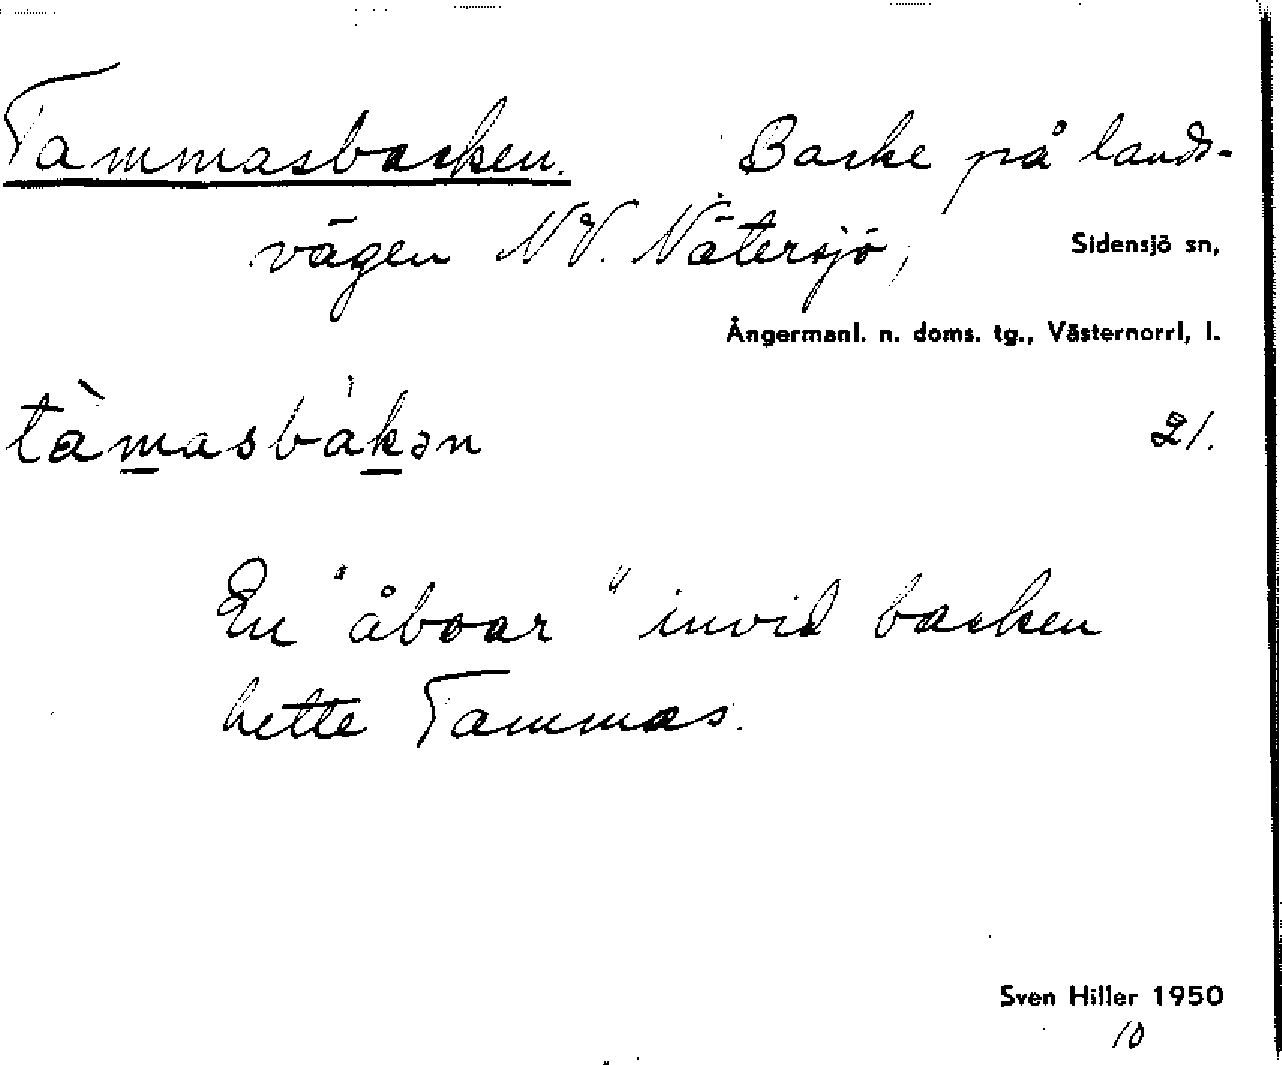 Tammasbacken. Backe på lands-
vägen NV. Nätersjö, Sidensjö sn,
Ångermanl. n. doms. tg., Västernorrl, l.
tàmasbákən 21.
En "åboar" invid backen
hette Tammas.
Sven Hiller 1950
10